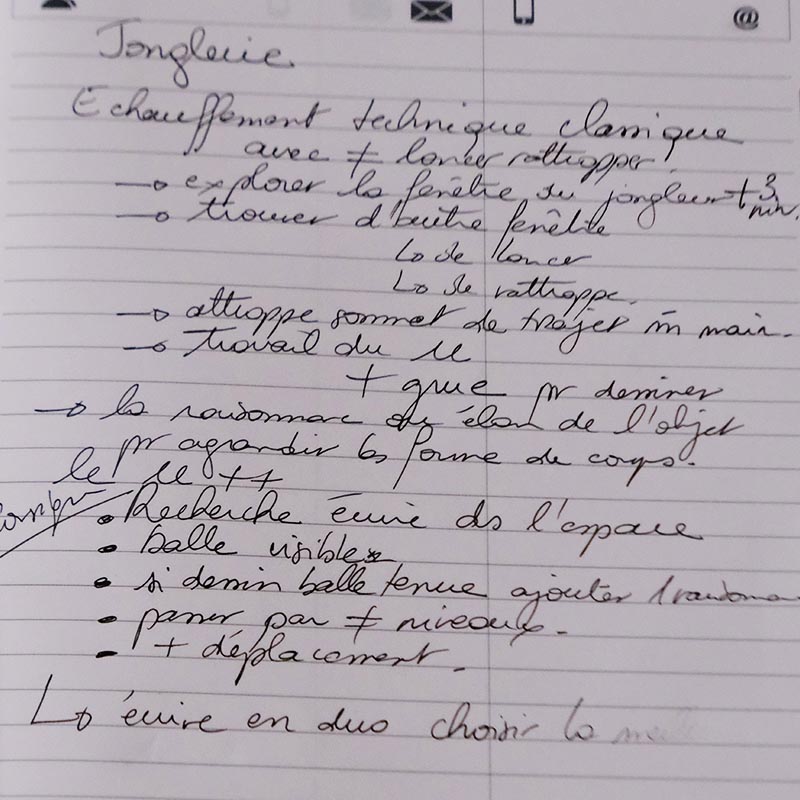 @
Jonglerie.
Echauffement technique classique
avec ≠ lancer rattrapper !
→ explorer la fenêtre du jongleur + 3 min.
→ trouver d'autre fenêtre
↳ de lancer
↳ de rattrappe.
→ attrappe sommet de trajet en main.
→ travail du
+ grue pr dessiner
→ la résonnance de élan de l'objet
pr agrandir la forme de corps.
le ++
• Recherche écrire ds l'espace
• balle visible
• si dessin balle tenue ajouter 1
• passer par ≠ niveaux.
• + déplacement.
↳ écrire en duo choisir la